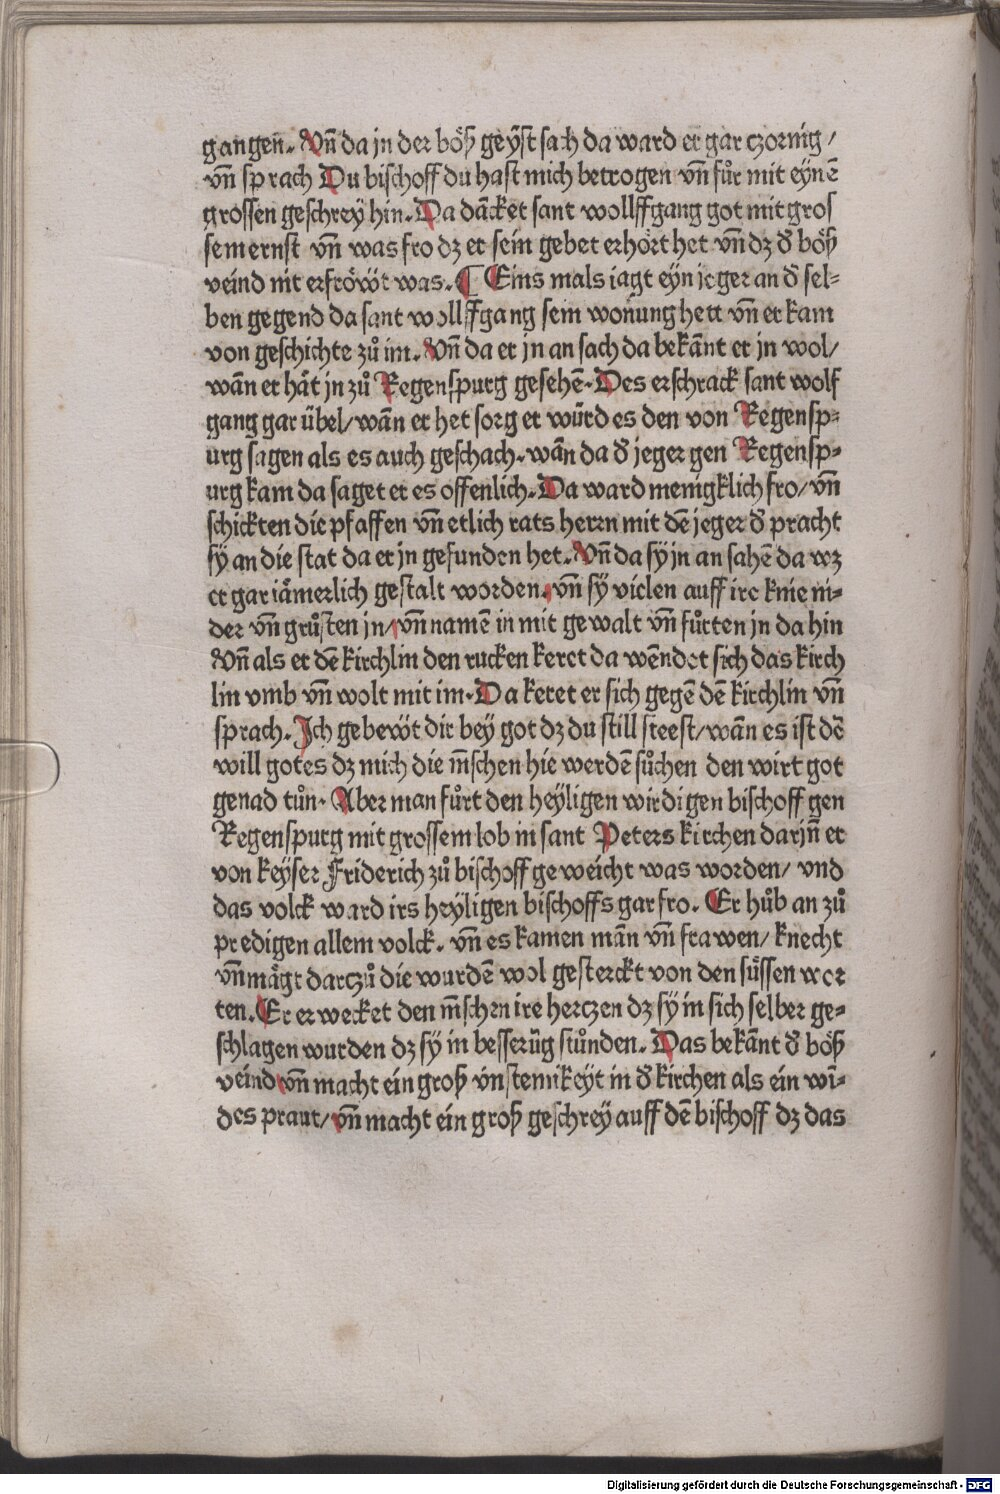 gangen. Vn̄ da jn der bôß geÿst sach da ward er gar czornig /
vn̄ sprach Du bischoff du hast mich betrogen vn̄ fůr mit eynē
grossen geschreÿ hin. Da dācket sant wollffgang got mit gros
sem ernst vn̄ was fro dz er sein gebet erhôrt het vn̄ dz d̄ bôß
veind nit erfrôwt was. ¶ Eins mals iagt eÿn jeger an d̄ sel⸗
ben gegend da sant wollffgang sein wonung hett vn̄ er kam
von geschichte zů im. Vn̄ da er jn an sach da bekān̄t er jn wol/
wān er hāt jn zů Regenspurg gesehē. Des erschrack sant wolf
gang gar übel/ wān er het sorg er würd es den von Regensp⸗
urg sagen als es auch geschach. wān da d̄ jeger gen Regensp⸗
urg kam da saget er es offenlich. Da ward menigklich fro/ vn̄
schickten die pfaffen vn̄ etlich rats herrn mit dē jeger d̄ pracht
sÿ an die stat da er jn gefunden het. Vn̄ da sÿ jn an sahē da wz
er gar iämerlich gestalt worden. vn̄ sÿ vielen auff ire knie ni⸗
der vn̄ grůsten jn/ vn̄ namē in mit gewalt vn̄ fůrten jn da hin
Vn̄ als er dē kirchlin den rucken keret da wēndet sich das kirch
lin vmb vn̄ wolt mit im. Da keret er sich gegē dē kirchlin vn̄
sprach. Ich gebewt dir bey got dz du still steest/ wān es ist dē
will gotes dz mich die m̄schen hie werdē sůchen den wirt got
genad tůn. Aber man fůrt den heÿligen wirdigen bischoff gen
Regenspurg mit grossem lob in sant Peters kirchen darjn̄ er
von keÿser Friderich zů bischoff geweicht was worden/ vnd
das volck ward irs heyligen bischoffs gar fro. Er hůb an zů
predigen allem volck. vn̄ es kamen mān vn̄ frawen/ knecht
vn̄ mägt darczů die wurdē wol gesterckt von den süssen wor
ten. Er erwecket den m̄schen ire hertzen dz sÿ in sich selber ge⸗
schlagen wurden dz sÿ in besserūg stůnden. Das bekān̄t d̄ bôß
veind vn̄ macht ein groß vnstemikeÿt in d̄ kirchen als ein wī⸗
des praut/ vn̄ macht ein groß geschrey auff dē bischoff dz das
Digitalisierung gefördert durch die Deutsche Forschungsgemeinschaft - DFG